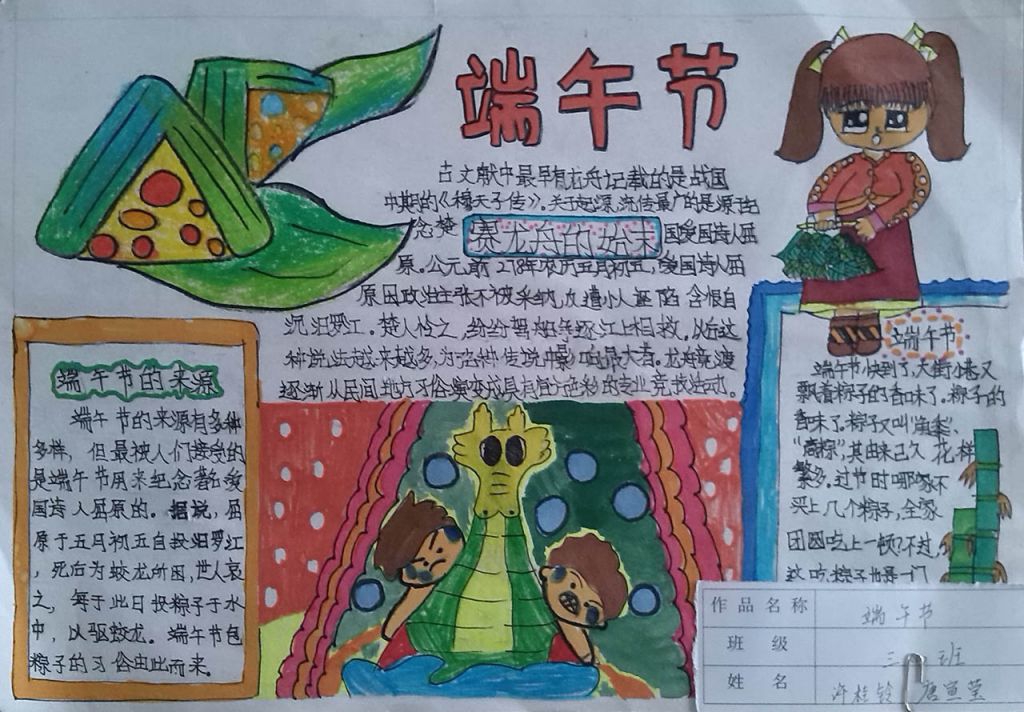 端午节
古文献中最早有龙舟记载的是战国
中期的《穆天子传》。关于起源,流传最广的是源于纪
念楚
赛龙舟的始末
国爱国诗人屈
原。公元前278年农历五月初五,爱国诗人屈
原因政治主张不被采纳,反遭小人诬陷含恨自
沉汨罗江。楚人怜之,纷纷驾船等逐江上相救。从后这
种说法越来越多,为它种传说中影响最大者。龙舟竞渡
逐渐从民间地方习俗演变成具有地方色彩的专业竞技活动。
端午节的来源
端午节的来源有多种
多样,但最被人们接受的
是端午节用来纪念著名爱
国诗人屈原的。据说,屈
原于五月初五自投汨罗江
,死后为蛟龙所困,世人哀
之,每于此日投粽子于水
中,以驱蛟龙。端午节包
粽子的习俗由此而来。
端午节
端午节快到了,大街小巷又
飘着粽子的香味了。粽子的
香味了,粽子又叫
其由来已久,花样
繁多。过节时哪家不
买上几个粽子,全家
团圆吃上一顿?不过,
这吃粽子也是一门
作品名称 端午节
班级 三 班
姓名 许桂铃 唐宣莹